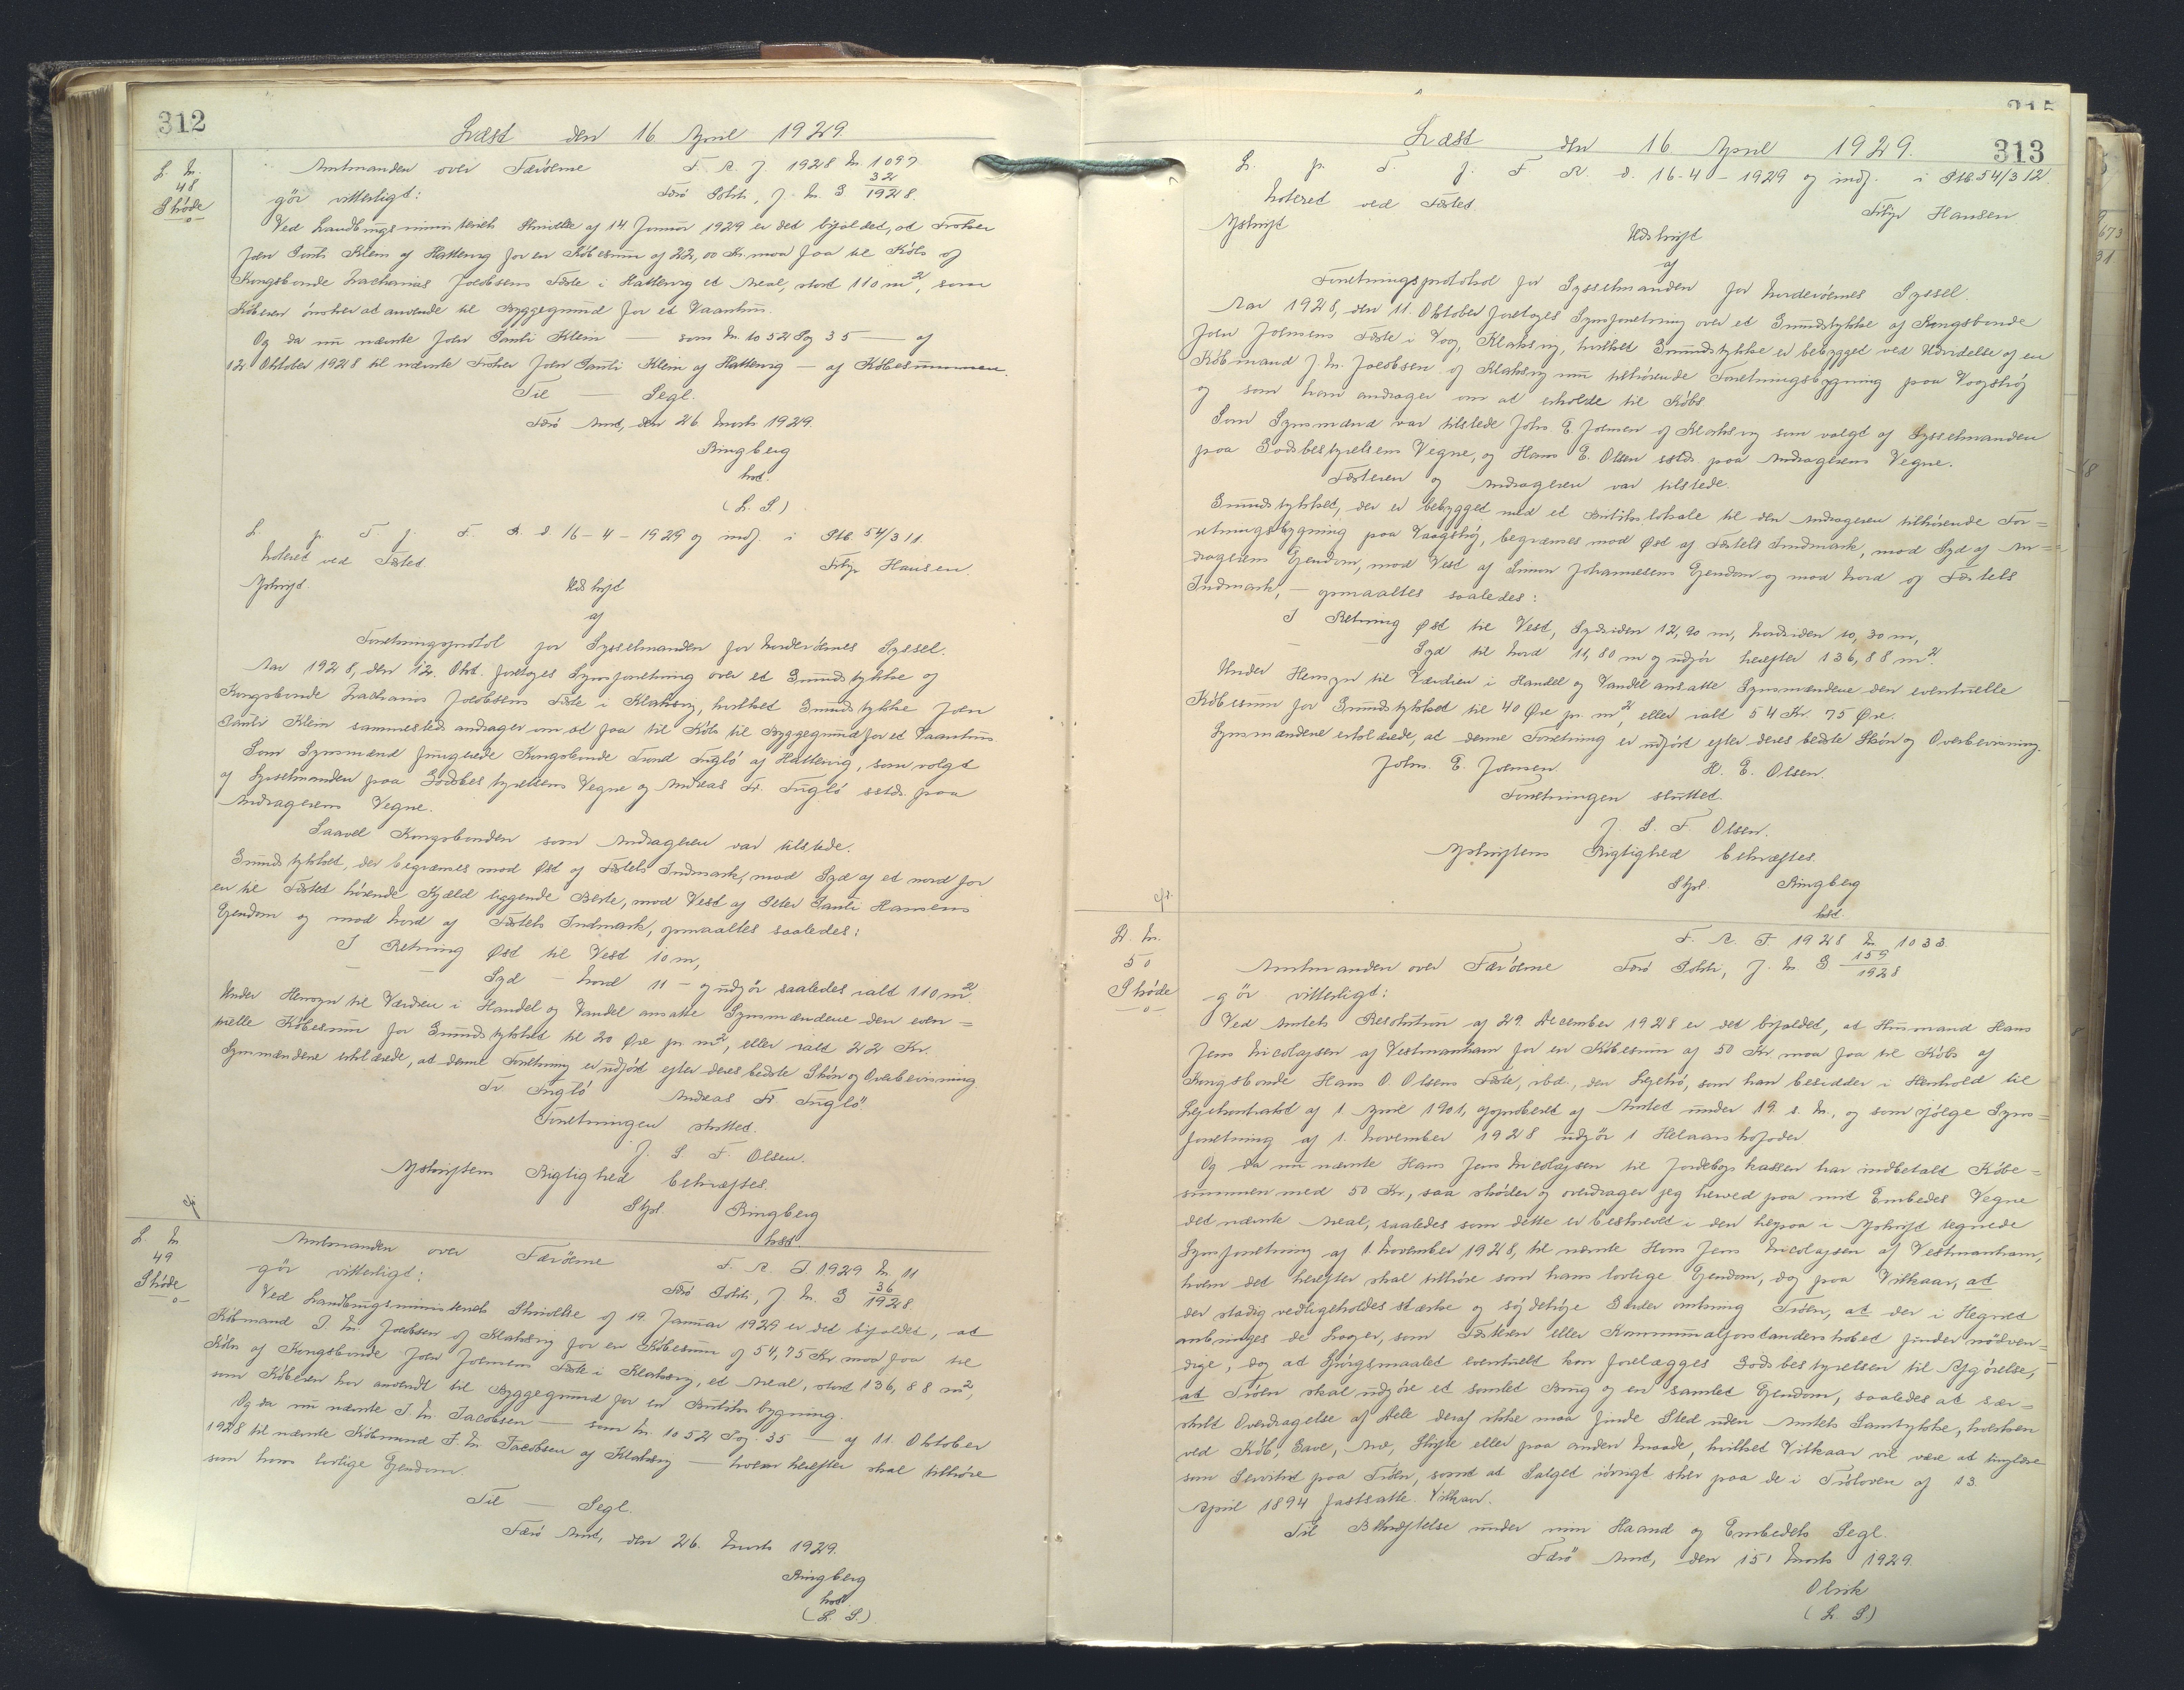 312
Læst den 16 April 1929.
L. Nr.
48
Skøde
Amtmanden over Færøerne F. A. J. 1928 Nr. 1097
gör vitterligt: Færö Politi, J. Nr. G. 32/1928.
Ved Landbrugsministeriets Skrivelse af 14 Januar 1929 er det bifaldet, at Fisker
Joen Pauli Klein af Hattervig for en Købesum af 22,00 Kr. maa faa til Købs af
Kongsbonde Zacharias Jacobsens Fæste i Hattervig et Areal, stort 110 m², som
Køberen ønsker at anvende til Byggegrund for et Vaanhus.
Og da nu nævnte Joen Pauli Klein — som Nr. 1052 Pag 35 — af
12. Oktober 1928 til nævnte Fisker Joen Pauli Klein af Hattervig — af Købesummen.
Til — Segl.
Færö Amt, den 26 Marts 1929.
Ringberg
kst.
(L. S.)
L. p. T. f. F. R. d. 16-4-1929 og indf. i Ptb 54/311.
Noteret ved Fæstet.
Filip Hansen.
Afskrift.
Udskrift
af
Forretningsprotol for Sysselmanden for Norderöernes Syssel.
Aar 1928, den 12. Okt. foretoges Synsforretning over et Grundstykke af
Kongsbonde Zacharias Jacobsens Fæste i Klaksvig, hvilket Grundstykke Joen
Pauli Klein sammesteds andrager om at faa til Købs til Byggegrund for et Vaanhus
Som Synsmænd fungerede Kongsbonde Trund Fuglö af Hattervig, som valgt
af Sysselmanden paa Godsbestyrelsens Vegne og Andreas Fr. Fuglö sstds. paa
Andragerens Vegne.
Saavel Kongsbonden som Andrageren var tilstede.
Grundstykket, der begrænses mod Øst af Fæstets Indmark, mod Syd af et nord for
en til Fæstet hørende Kjæld liggende Berte, mod Vest af Peter Pauli Hansens
Ejendom og mod Nord af Fæstets Indmark, opmaaltes saaledes:
I Retning Øst til Vest 10 m,
— — Syd - Nord 11 - og udgör saaledes ialt 110 m².
Under Hensyn til Værdien i Handel og Vandel ansatte Synsmændene den even=
tuelle Købesum for Grundstykket til 20 Øre pr m², eller ialt 22 Kr.
Synsmændene erklærede, at denne Forretning er udført efter deres bedste Skøn og Overbevisning.
Tr. Fuglö Andreas Fr. Fuglö.
Forretningen sluttet.
J. S. F. Olsen.
Afskriftens Rigtighed bekræftes.
Stpl. Ringberg
kst.
L. Nr
49
Skøde
Amtmanden over Færöerne F. A. J 1929 Nr. 11
gör vitterligt: Færö Politi, J Nr. G 36/1928.
Ved Landbrugsministeriets Skrivelse af 19. Januar 1929 er det bifaldet, at
Købmand J. Nr. Jacobsen af Klaksvig for en Købesum af 54,75 Kr maa faa til
Købs af Kongsbonde Joen Joensens Fæste i Klaksvig, et Areal, stort 136,88 m²,
som Køberen har anvendt til Byggegrund for en Butiks bygning.
Og da nu nævnte J. Nr. Jacobsen — som Nr. 1052 Pag. 35 — af 11. Oktober
1928 til nævnte Købmand J. Nr. Jacobsen af Klaksvig — hvem herefter skal tilhöre
som hans lovlige Ejendom.
Til — Segl.
Færö Amt, den 26. Marts 1929.
Ringberg
kst.
(L. S.)
313
Læst den 16 April 1929.
L. p. T. f. F. R. d. 16-4-1929 og indf. i Ptb 54/312.
Noteret ved Fæstet.
Filip Hansen
Afskrift
Udskrift
af
Forretningsprotokol for Sysselmanden for Norderöernes Syssel.
Aar 1928, den 11. Oktober foretoges Synsforretning over et Grundstykke af Kongsbonde
Joen Joensens Fæste i Vaag, Klaksvig, hvilket Grundstykke er bebygget ved Udvidelse af en
Købmand J. Nr. Jacobsen af Klaksvig nu tilhörende Forretningsbygning paa Vaagshøj
og som han andrager om at erholde til Købs.
Som Synsmænd var tilstede Johs E. Joensen af Klaksvig som valgt af Sysselmanden
paa Godsbestyrelsens Vegne, og Hans E. Olsen sstds. paa Andragerens Vegne.
Fæsteren og Andrageren var tilstede.
Grundstykket, der er bebygget med et Butikslokale til den Andrageren tilhörende For=
retningsbygning paa Vaagshøj, begrænses mod Øst af Fæstets Indmark, mod Syd af An=
dragerens Ejendom, mod Vest af Simon Johannesens Ejendom og mod Nord af Fæstets
Indmark, - opmaaltes saaledes:
I Retning Øst til Vest, Sydsiden 12,90 m, Nordsiden 10,30 m,
— — Syd til Nord 11,80 m og udgör herefter 136,88 m².
Under Hensyn til Værdien i Handel og Vandel ansatte Synsmændene den eventuelle
Købesum for Grundstykket til 40 Øre pr. m², eller ialt 54 Kr. 75 Øre.
Synsmændene erklærede, at denne Forretning er udført efter deres bedste Skøn og Overbevisning.
Johs. E. Joensen. H. E. Olsen.
Forretningen sluttet.
J. S. F. Olsen.
Afskriftens Rigtighed bekræftes.
Stpl. Ringberg
kst.
L. Nr.
50
Skøde
F. A. J 1928 Nr 1033
Amtmanden over Færöerne Færö Politi, J. Nr G 159/1928
gör vitterligt:
Ved Amtets Resolution af 29. December 1928 er det bifaldet, at Husmand Hans
Jens Nicolajsen af Vestmanhavn for en Købesum af 50 Kr. maa faa til Købs af
Kongsbonde Hans O. Olsens Fæste, ibd., den Lejetrö, som han besidder i Henhold til
Lejekontrakt af 1. April 1901, approberet af Amtet under 19. s. M., og som ifølge Syns=
forretning af 1. November 1928 udgör 1 Helaarskofoder
Og da nu nævnte Hans Jens Nicolajsen til Jordebogskassen har indbetalt Købe=
summen med 50 Kr., saa skøder og overdrager jeg herved paa mit Embedes Vegne
det nævnte Areal, saaledes som dette er beskrevet i den herpaa i Afskrift tegnede
Synsforretning af 1. November 1928, til nævnte Hans Jens Nicolajsen af Vestmanhavn,
hvem det herefter skal tilhöre som hans lovlige Ejendom, dog paa Vilkaar, at
der stadig vedligeholdes stærke og sөjdehöje Gærder omkring Tröen, at der i Hegnet
anbringes de Laager, som Fæsteren eller Kommunalforstanderskabet finder nødven=
dige, dog at Spörgsmaalet eventuelt kan forelægges Godsbestyrelsen til Afgörelse,
at Tröen skal udgøre et samlet Brug og en samlet Ejendom, saaledes at sær=
skilt Overdragelse af Dele deraf ikke maa finde Sted uden Amtets Samtykke, hverken
ved Køb, Gave, Arv, Skifte eller paa anden Maade, hvilket Vilkaar vil være at tinglæse
som Servitut paa Tröen, samt at Salget iövrigt sker paa de i Tröloven af 13.
April 1894 fastsatte Vilkaar.
Til Bekræftelse under min Haand og Embedets Segl.
Færö Amt, den 15. Marts 1929.
Olrik
(L. S.)